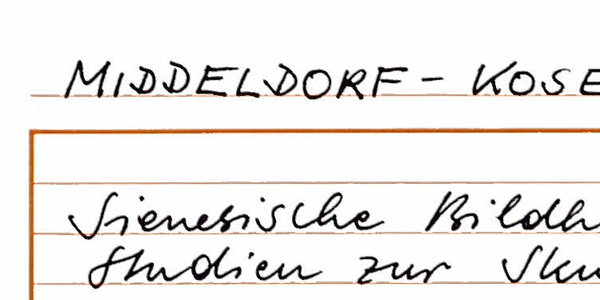 MIDDELDORF - KOSE
Sienesische Bildh
Studien zur Sku